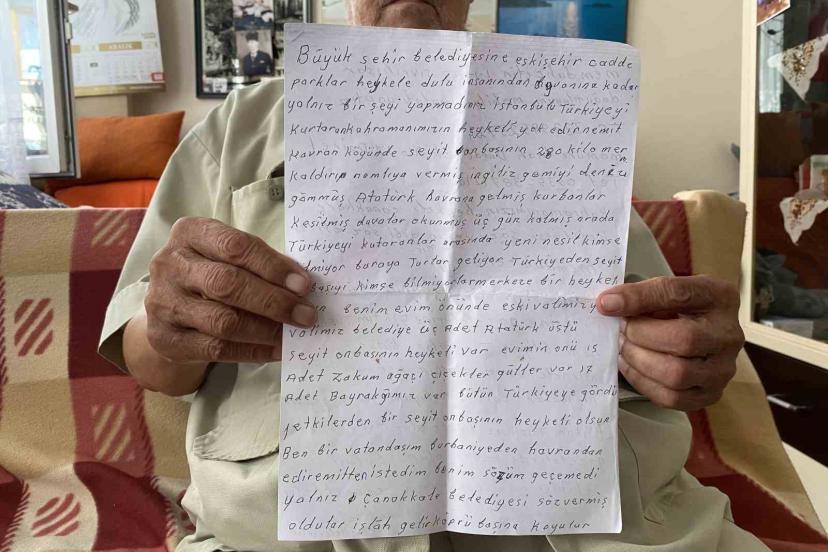 ARALIK
Büyük şehir belediyesine eskişehir cadde
parklar heykele dolu insanından hayvanına kadar
yalnız bir şeyi yapmadınız istanbulu Türkiyeyi
Kurtaran kahramanımızın heykeli yok edirnemit
Havran köyünde seyit onbaşının 280 kilo mer
Kaldırıp namluya vermiş ingiliz gemiyi denize
gömmüş Atatürk havrana gelmiş kurbanlar
kesilmiş dualar okunmuş üç gün kalmış arada
Türkiyeyi kutaranlar arasında yeni nesil kimse
bilmiyor buraya Turlar geliyor Türkiyeden seyit
kimse bilmiyorlar merkeze bir heykel
benim evim önünde eski valimiz
valimiz belediye üç Adet Atatürk üstü
seyit onbaşının heykeli var evimin önü 15
Adet zakum ağaçı çiçekler güller var 17
Adet Bayrakğımız var bütün Türkiyeye gördü
yetkilerden bir seyit onbaşının heykeli olsun
Ben bir vatandaşım burhaniyeden havrandan
edremitten istedim benim sözüm geçemedi
yalnız Çanakkale belediyesi söz vermiş
oldular işlah gelir köprü başına koyulur